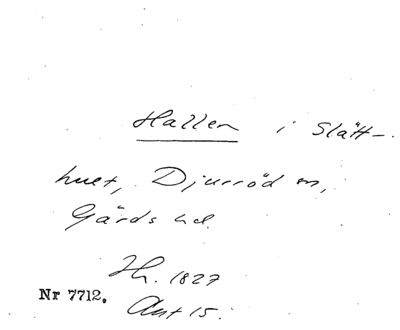 Hallen i Slätt-
huet, Djurröd sn,
Gärds hd.
Hh. 1827
Nr 7712.
Ant 15.